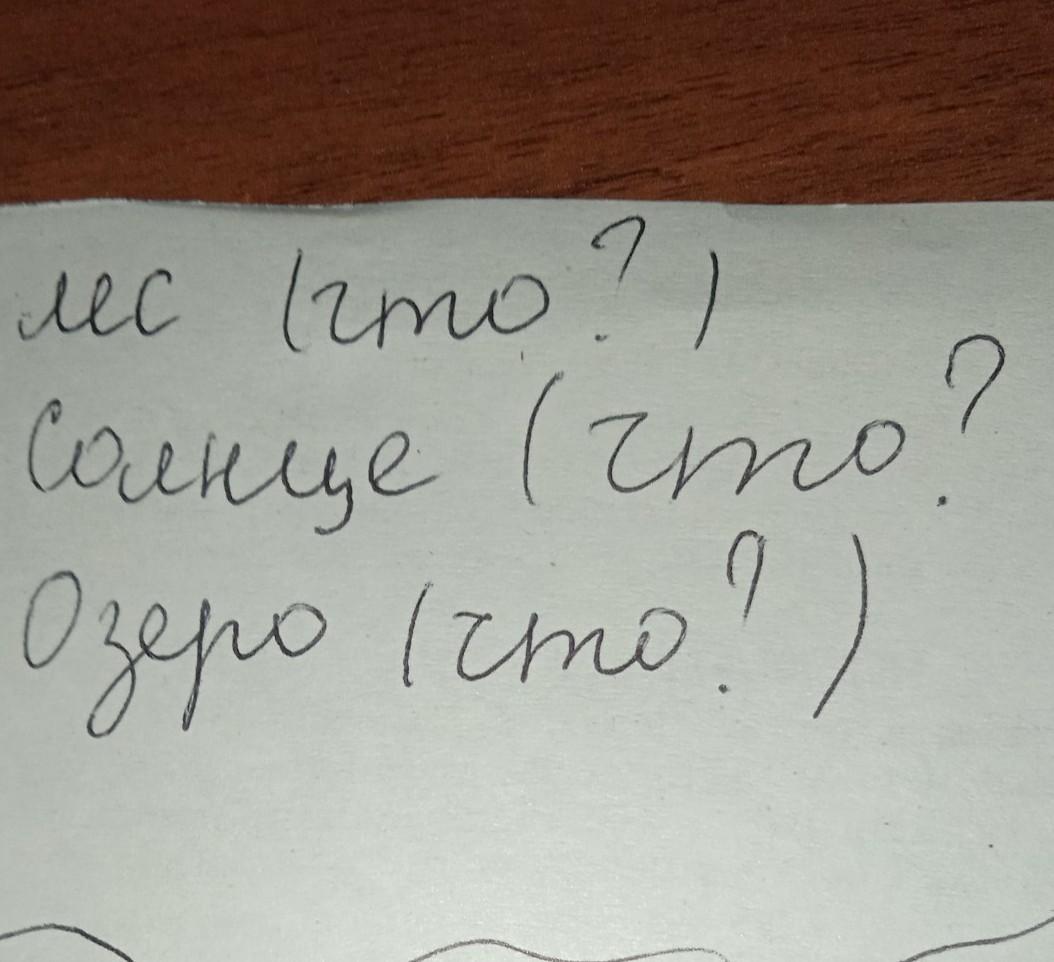 лес (что?)
Солнце (что?
Озеро (что?)